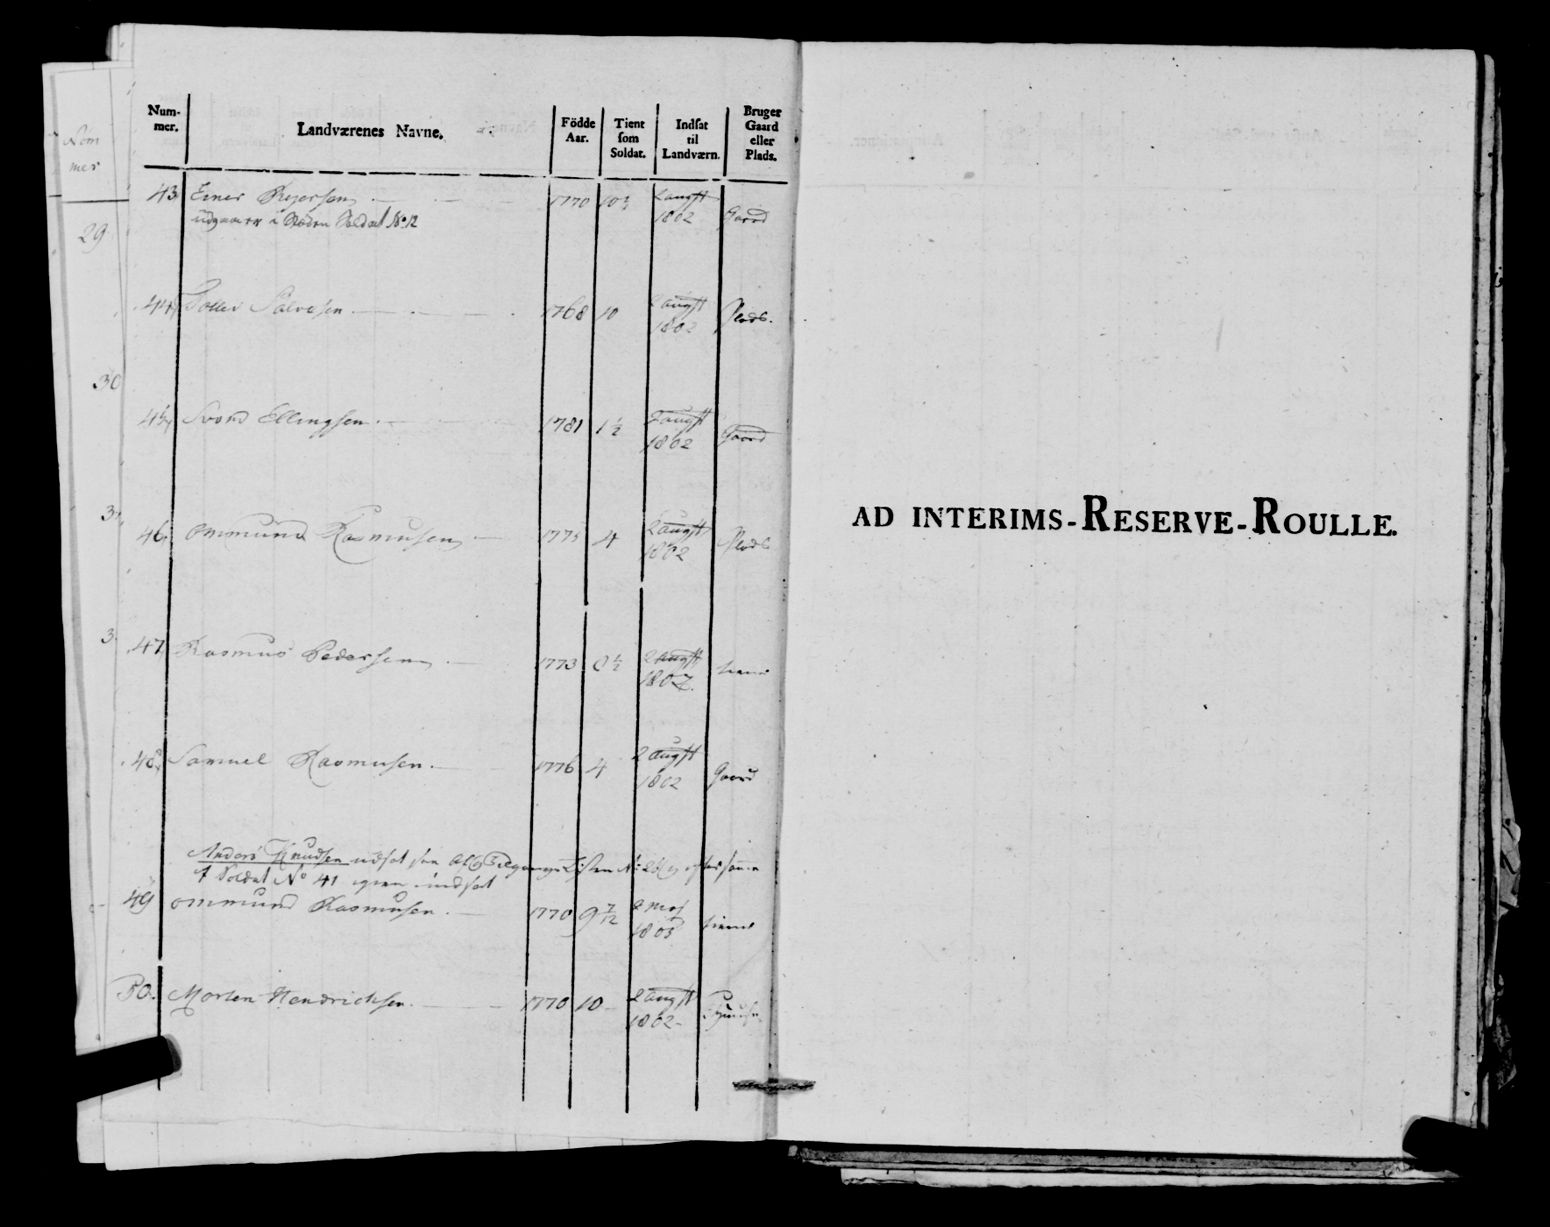 Num-
mer.
Landværenes Navne.
Födde
Aar.
Tient
som
Soldat.
Indsat
til
Landværn.
Bruger
Gaard
eller
Plads.
Nom
mer
29
30
43 Einer Rejersen 1770 10½ 2 augst 1802 Gaard
i Soldat No 12
44 Salvesen 1768 10 2 augst 1802 Plads.
45 Svend Ellingsen 1781 1½ 2 augst 1802 Gaard
46 Ommund Rasmusen 1775 4 2 augst 1802 Plads
47 Rasmus Pedersen 1773 8½ 2 augst 1802
48 Samuel Rasmusen. 1776 4 2 augst 1802 Gaard
Anders Knudsen udsat
Soldat No 41 igien indsat
49 Ommund Rasmusen. 1770 9 7/12 2 1803
50. Morten Hendrichsen. 1770 10 2 augst 1802
AD INTERIMS-RESERVE-ROULLE.